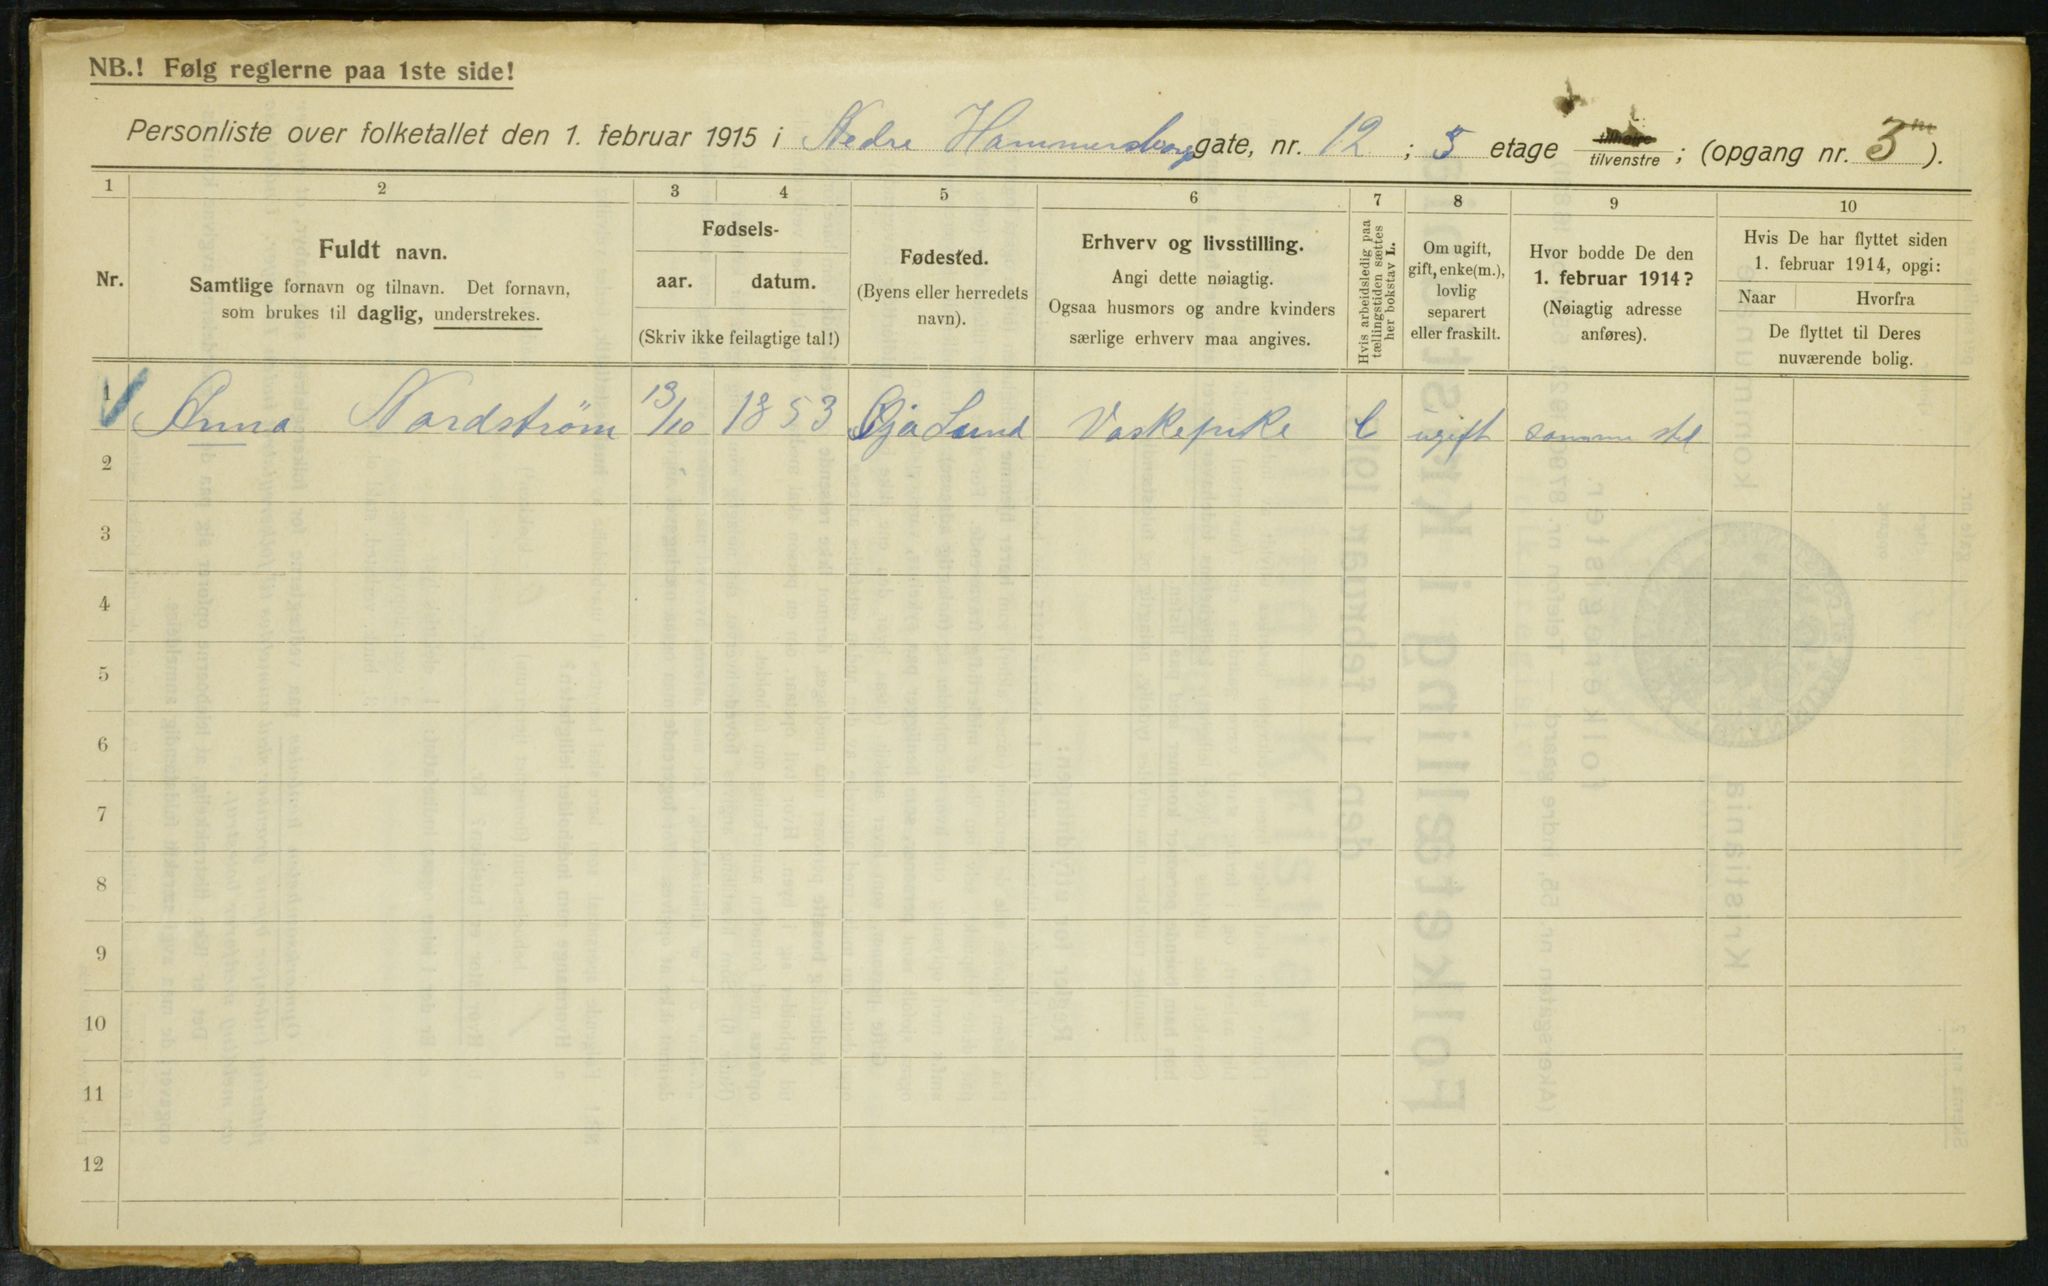 NB.! Følg reglerne paa 1ste side!
Personliste over folketallet den 1. februar 1915 i Nedre Hammersborg gate, nr. 12 ; 5 etage tilhøire tilvenstre ; (opgang nr. 3 ).
1 2 3 4 5 6 7 8 9 10
Nr.
Fuldt navn.
Samtlige fornavn og tilnavn. Det fornavn,
som brukes til daglig, understrekes.
Fødsels-
aar. datum.
(Skriv ikke feilagtige tal!)
Fødested.
(Byens eller herredets
navn).
Erhverv og livsstilling.
Angi dette nøiagtig.
Ogsaa husmors og andre kvinders
særlige erhverv maa angives.
Hvis arbeidsledig paa
tællingstiden sættes
her bokstav L.
Om ugift,
gift, enke(m.),
lovlig
separert
eller fraskilt.
Hvor bodde De den
1. februar 1914?
(Nøiagtig adresse
anføres).
Hvis De har flyttet siden
1. februar 1914, opgi:
Naar Hvorfra
De flyttet til Deres
nuværende bolig.
1 Anna Nordstrøm 13/10 1853 Lund Vaskepike ugift samme sted
2
3
4
5
6
7
8
9
10
11
12